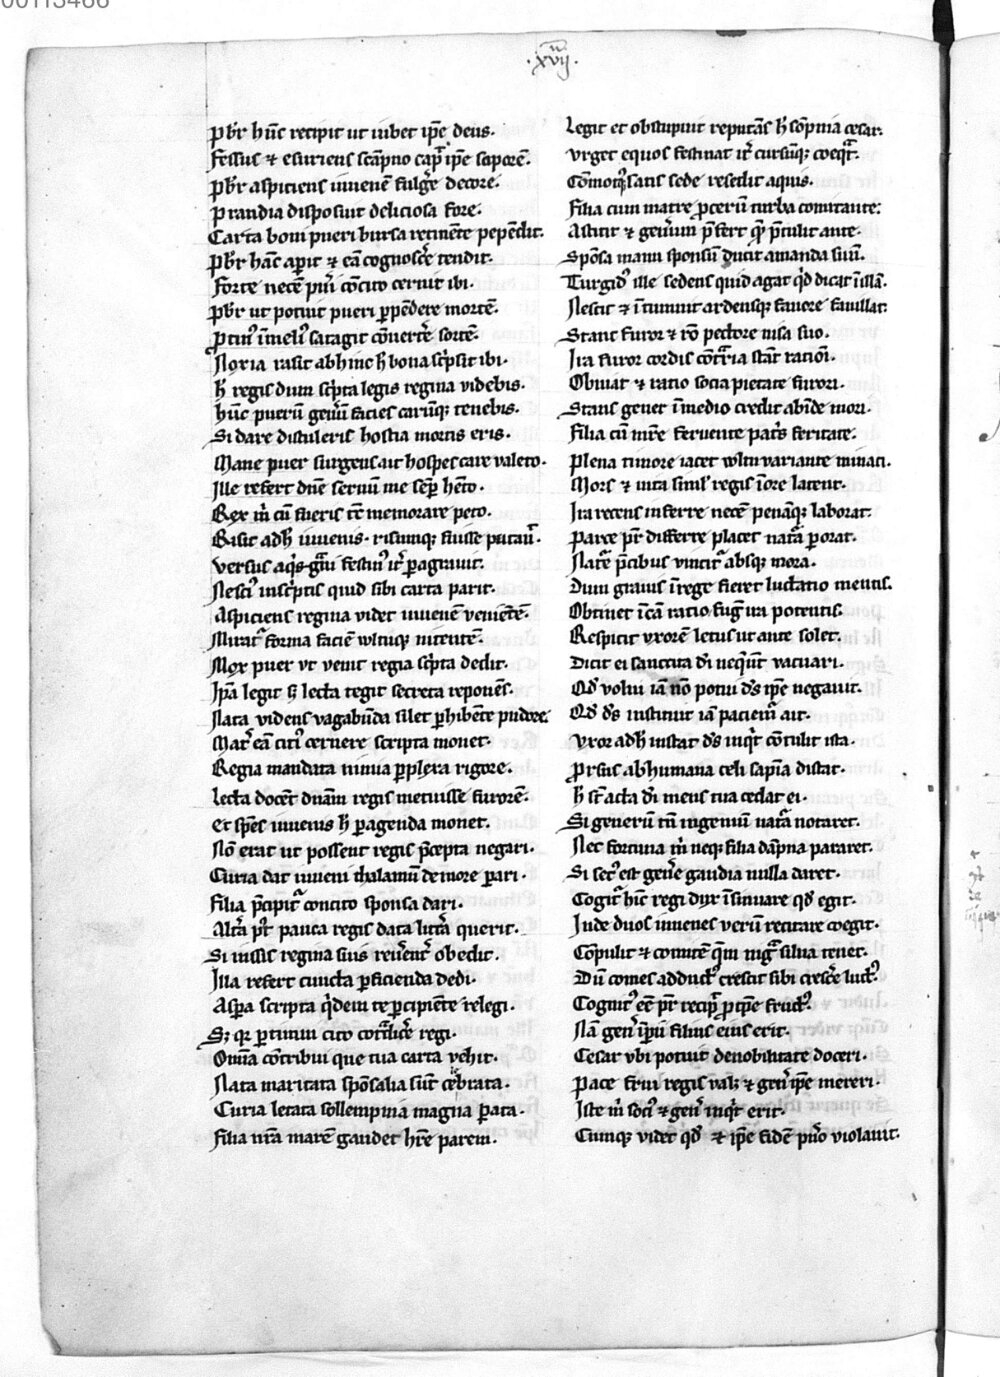 00113466
.xvij.
Pb̄r hūc recipit ut iubet ip̄e deus.
Fessus ⁊ esuriens scāpno cap̄ ip̄e soporē.
Pb̄r aspiciens iuuenē fulgē decore.
Prandia disposuit deliciosa fore.
Carta boni pueri bursa retinēte pepēdit.
Pb̄r hāc aperit ⁊ eā cognoscē tendit.
Forte necē pūi cōcito cernit ibi.
Pb̄r ut potuit pueri ꝑpēdere mortē.
Ptinꝰ ī meliꝰ satagit cōuertē sortē.
Noxia rasit abhinc h̄ bona sc̄psit ibi.
h̄ regis dum sc̄pta legis regina videbis.
hūc puerū genūm facies carūqꝫ tenebis.
Si dare distuleris hostia mortis eris.
Mane puer surgens ait hospes care valeto.
Ille refert dn̄e seruū me semꝑ hēto.
Rex m̄ cū fueris tē memorare peto.
Risit adh̄ iuuenis. risumqꝫ fuisse putauīt.
Versus aq̄s festinꝰ it̄ ꝑagrauit.
Nesciꝰ insc̄ptis quid sibi carta parit.
Aspiciens regina videt iuuenē veniētē.
Mirat̄ forma faciē wltuqꝫ nitentē.
Mox puer vt venit regia sc̄pta dedit.
Ip̄a legit ꝫ lecta tegit secreta reponēs.
Nata videns vagabūda silet ꝑhibēte pudore.
Mat̄ eā citiꝰ cernere scripta monet.
Regia mandata nimia ꝑplexa rigore.
Lecta docēt dnām regis metuisse furorē.
Et sp̄es iuuenis h̄ ꝑagenda monet.
Nō erat ut possent regis p̄cepta negari.
Curia dat iuueni thalamū de more pari.
Filia p̄cipit̄ concito sponsa dari.
Alt̄a pꝰ pauca regis data litt̄a querit.
Si iussis regina suis reuēent̄ obedit.
Illa refert cuncta ꝑficienda dedi.
Asp̄a scripta q̄dem te ꝑcipiēte relegi.
Sꝫ q̄ ꝑtimui cito regi.
Omīa cōtribui que tua carta vehit.
Nata maritata spōsalia sūt celebrata.
Curia letata sollempnia magna parata.
Filia nr̄a marē gaudet hr̄e parem.
Legit et obstupuit reputās h̄ sōpnia cesar.
Vrget equos festinat it̄ cursumqꝫ coeqt̄.
Cōmotqꝫ satis sede resedit aquis.
Filia cum matre ꝓcerū turba comitante.
Astitit ⁊ genūm p̄fert q̄ p̄tulit ante.
Spōsa manu sponsū ducit amanda suū.
Turgidꝰ ille sedens quid agat qd̄ dicat ī illā.
Nescit ⁊ ītumuit ardensqꝫ furore fauillat.
Stant furor ⁊ rō pectore nisa suo.
Ira furor cordis cōt̄ria stāt rationi.
Obuiat ⁊ ratio socia pietate furori.
Stans gener ī medio credit abīde mori.
Filia cū mr̄e feruente pat̄s feritate.
Plena timore iacet wltu variante minaci.
Mors ⁊ uita simul regis ī ore latent.
Ira recens inferre necē penāqꝫ laborat.
Parce pr̄ differre placet nat̄a ꝑorat.
Nat̄e p̄cibus vincit̄ absqꝫ mora.
Dum grauis ī rege fieret luctatio mentis.
Obtinet ī cā ratio fuḡ ira potentis.
Respicit vxorē letus ut ante solet.
Dicit ei sanctita di neq̄unt vacuari.
Qd̄ volui iā nō potui ds̄ ip̄e negauit.
Qd̄ ds̄ instituit iā paciem̄ ait.
Vxor adh̄ instat ds̄ inq̄t cōtulit ista.
Prsus abhumana celi sapīa distat.
h̄ sūt acta di mens tua cedat ei.
Si generū tn̄ ingeniū nat̄a notaret.
Nec fortuna m̄ neqꝫ filia dāpna pararet.
Si secꝰ est gene gaudia nulla daret.
Cogit̄ hīc regi dux īsinuare qd̄ egit.
Inde duos iuuenes verū recitare coegit.
Cōpulit ⁊ comitē q̄m nigra silua tenet.
Dū comes adductꝰ crescit sibi crescē luctꝰ.
Cognitꝰ eē pr̄ recipit̄ ꝓ cp̄e fructꝰ.
Nā gen̄ īperii filius eius erit.
Cesar vbi potuit de nobilitate doceri.
Pace frui regis valꝫ ⁊ gen̄ ip̄e mereri.
Iste m̄ sociꝰ ⁊ gen̄ inq̄t erit.
Cumqꝫ videt qd̄ ⁊ ip̄e fidē pūo violauit.